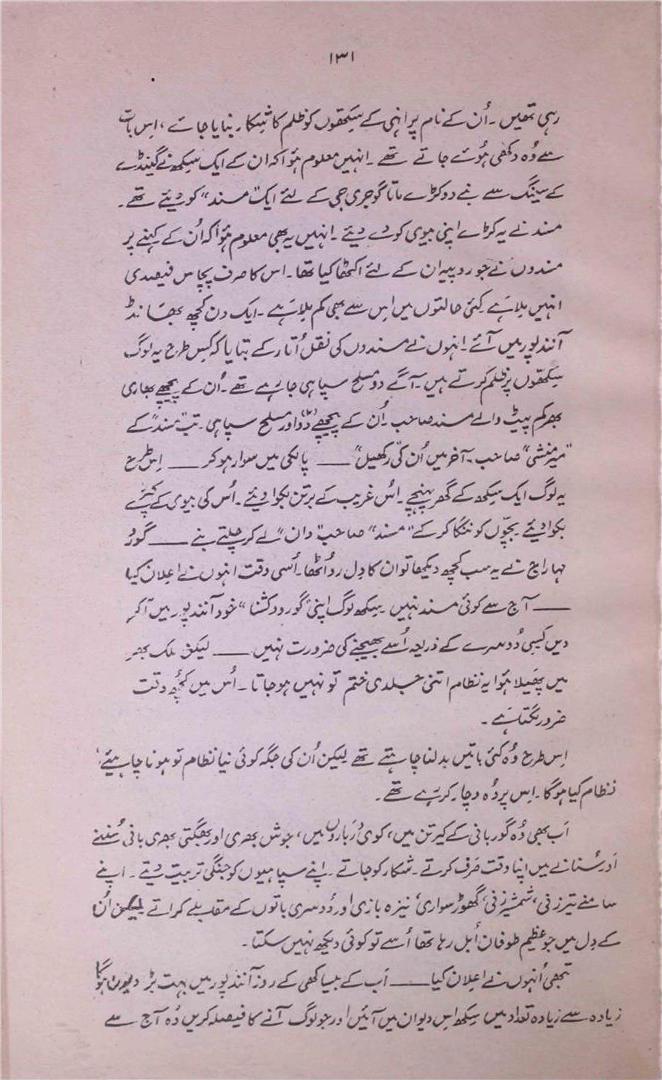 ۱۳۱
رہی تھیں ۔ اُن کے نام پر انہی کے سِکھوں کو ظلم کا شِکار بنایا جائے ، اِس بات
سے وُہ دکھی ہُوئے جاتے تھے ۔ انہیں معلوم ہُوا کہ ان کے ایک سِکھ نے گینڈے
کے سینگ سے بنے دو کڑے ماتا گوجری جی کے لئے ایک "مسند" کو دیئے تھے ۔
مسند نے یہ کڑے اپنی بیوی کو دے دیئے ۔ انہیں یہ بھی معلوم ہُوا کہ اُن کے کہنے پر
مسندوں نے جو روپیہ ان کے لئے اکٹھا کیا تھا ۔ اس کا صرف پچاس فیصدی
انہیں مِلا ہَے کئی حالتوں میں اِس سے بھی کم مِلا ہَے ۔ ایک دن کچھ بھانڈ
آنند پور میں آئے ۔ انہوں نے مسندوں کی نقل اُتار کے بتایا کہ کِس طرح یہ لوگ
سِکھوں پر ظلم کرتے ہیں ۔ آگے دو مسلح سپاہی جا رہے تھے ۔ اُن کے پیچھے بھاری
بھر کم پیٹ والے مسند صاحب ۔ اُن کے پیچھے (۲) دو اور مسلح سپاہی ۔ تب "مسند" کے
"میر منشی" صاحب ۔ آخر میں اُن کی "رکھیل" ــــ پالکی میں سوار ہو کر ــــ اِس طرح
یہ لوگ ایک سِکھ کے گھر پہنچے ۔ اُس غریب کے برتن بکوا دیئے ۔ اُس کی بیوی کے کپڑے
بکوا دیئے بچّوں کو ننگا کر کے "مسند" صاحب "دان" لے کر چلتے بنے ــــ گورُو
مہاراج نے یہ سب کچھ دیکھا تو ان کا دِل رو اُٹھا ۔ اُسی وقت انہوں نے اعلان کیا
ــــ آج سے کوئی مسند نہیں ۔ سِکھ لوگ اپنی "گورو دکشنا" خود آنند پور میں آ کر
دیں کِسی دُوسرے کے ذریعہ اُسے بھیجنے کی ضرورت نہیں ــــ لیکن ملک بھر
میں پھَیلا ہُوا یہ نظام اتنی جلدی ختم تو نہیں ہو جاتا ۔ اُس میں کچُھ وقت
ضرور لگتا ہَے ۔
اِس طرح وُہ کئی باتیں بدلنا چاہتے تھے لیکن اُن کی جگہ کوئی نیا نظام تو ہونا چاہیئے،
نظام کیا ہوگا ۔ اِس پر وُہ وچار کر رہے تھے ۔
اَب بھی وُہ گوربانی کے کیرتن میں ، کوی دَرباروں میں ، جوش بھری اور بھگتی بھری بانی سُننے
اور سُنانے میں اپنا وقت صَرف کرتے ۔ شکار کو جاتے ۔ اپنے سپاہیوں کو جنگی تربیت دیتے ۔ اپنے
سامنے تیر زنی ، شمشیر زنی ، گھوڑ سواری ، نیزہ بازی اور دُوسری باتوں کے مقابلے کراتے لیکن اُن
کے دِل میں جو عظیم طوفان اُبل رہا تھا اُسے تو کوئی دیکھ نہیں سکتا ۔
تبھی اُنہوں نے اعلان کیا ــــ اَب کے بیساکھی کے روز آنند پور میں بہت بڑا دیوان ہوگا
زیادہ سے زیادہ تعداد میں سِکھ اِس دیوان میں آئیں اور جو لوگ آنے کا فیصلہ کریں وُہ آج سے